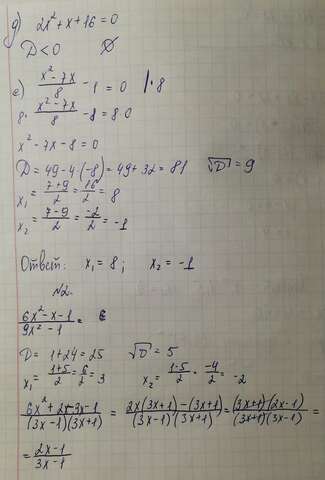 д) 2x² + x + 16 = 0
D < 0 Ø
е) (x² - 7x)/8 - 1 = 0 |·8
8 · (x² - 7x)/8 - 8 = 8·0
x² - 7x - 8 = 0
D = 49 - 4·(-8) = 49 + 32 = 81 √D = 9
x₁ = (7+9)/2 = 16/2 = 8
x₂ = (7-9)/2 = -2/2 = -1
Ответ: x₁ = 8; x₂ = -1
№2.
(6x² - x - 1)/(9x² - 1) =
D = 1 + 24 = 25 √D = 5
x₁ = (1+5)/2 = 6/2 = 3 x₂ = (1-5)/2 = -4/2 = -2
(6x² + 2x - 3x - 1)/((3x-1)(3x+1)) = (2x(3x+1) - (3x+1))/((3x-1)(3x+1)) = ((3x+1)(2x-1))/((3x+1)(3x-1)) =
= (2x-1)/(3x-1)